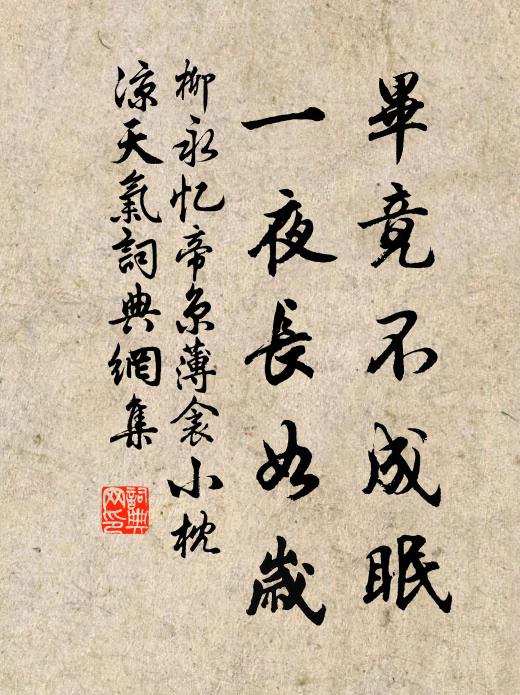 畢竟不成眠
一夜長如歲
柳永忆帝京薄衾小枕
凉天氣詞典網集
詞典
网印